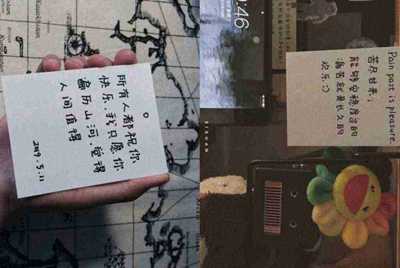 所有人都祝你
快乐,我只愿你
遍历山河,觉得
人间值得
2019.5.11
:46
Pain past is pleasure.
苦尽甘来,
能够安稳度过的
痛苦就是长久的
欢乐:)